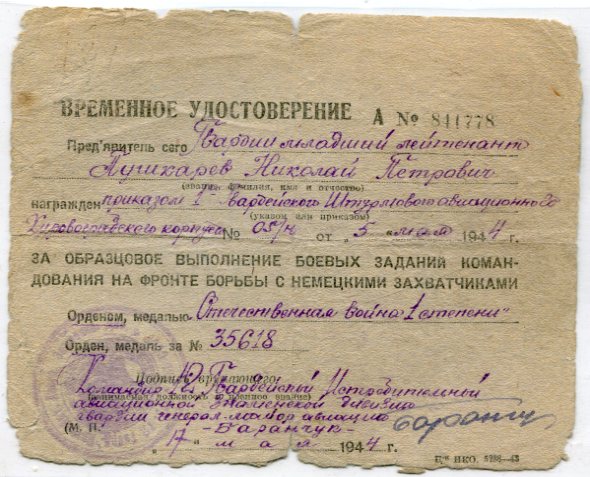 ВРЕМЕННОЕ УДОСТОВЕРЕНИЕ А № 841778
Пред'явитель сего Гвардии младший лейтенант
Пушкарев Николай Петрович
(звание, фамилия, имя и отчество)
награжден приказом 1 Гвардейского Штурмового авиационного
Кировоградского корпуса № 05/н от „5" мая 1944 г.
(указом или приказом)
ЗА ОБРАЗЦОВОЕ ВЫПОЛНЕНИЕ БОЕВЫХ ЗАДАНИЙ КОМАН-
ДОВАНИЯ НА ФРОНТЕ БОРЬБЫ С НЕМЕЦКИМИ ЗАХВАТЧИКАМИ
Орденом, медалью „Отечественная война 1 степени"
Орден, медаль за № 35618
Подпись вручающего:
Командир 12 Гвардейской Истребительной
(занимаемая должность и военное звание)
авиационной дивизии
гвардии генерал-майор авиации
(М. П.) - Баранчук -
„7" мая 1944 г.
НКО. 5288—43